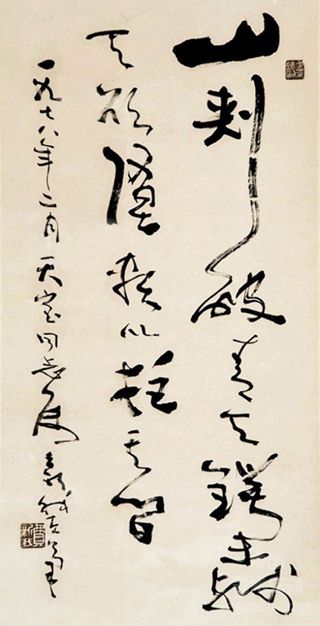 山刺破青天锷未残
天欲堕赖以拄其间
一九七八年二月天宝同志属